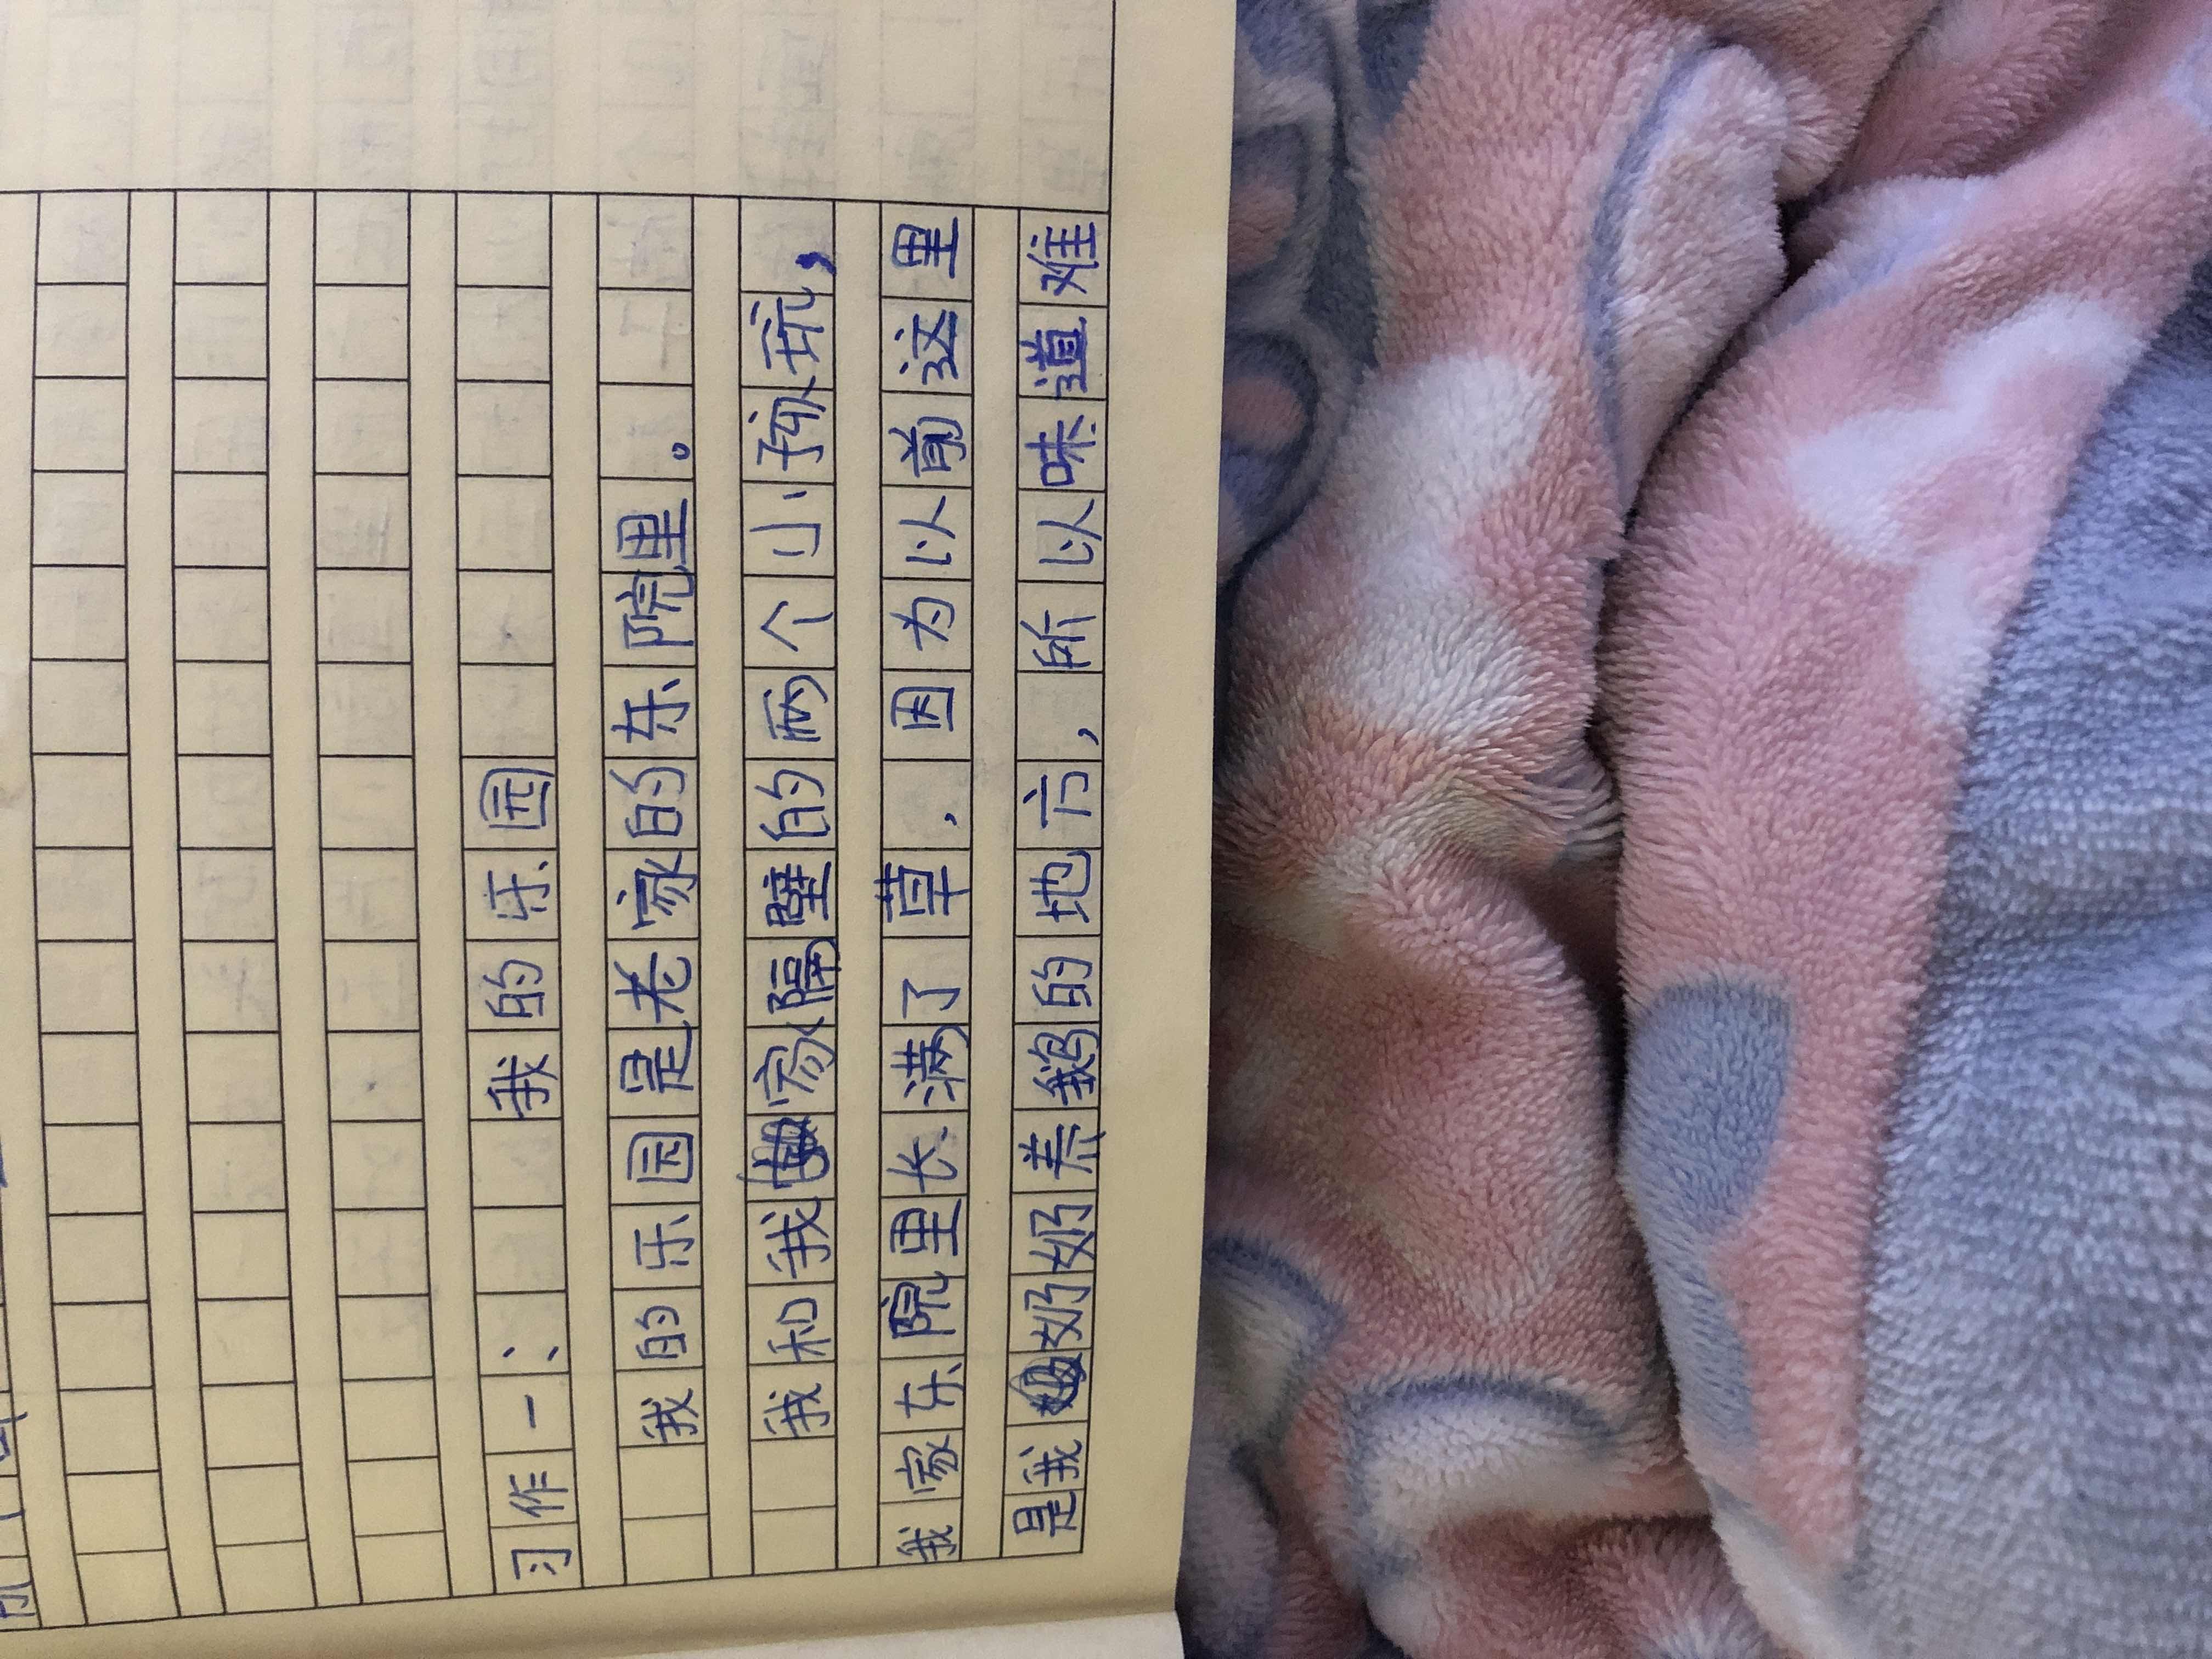 习作一：
我的乐园
我的乐园是老家的东院里。
我和我家隔壁的两个小孩玩，
我家东院里长满了草，因为以前这里
是我奶奶养鹅的地方，所以味道难